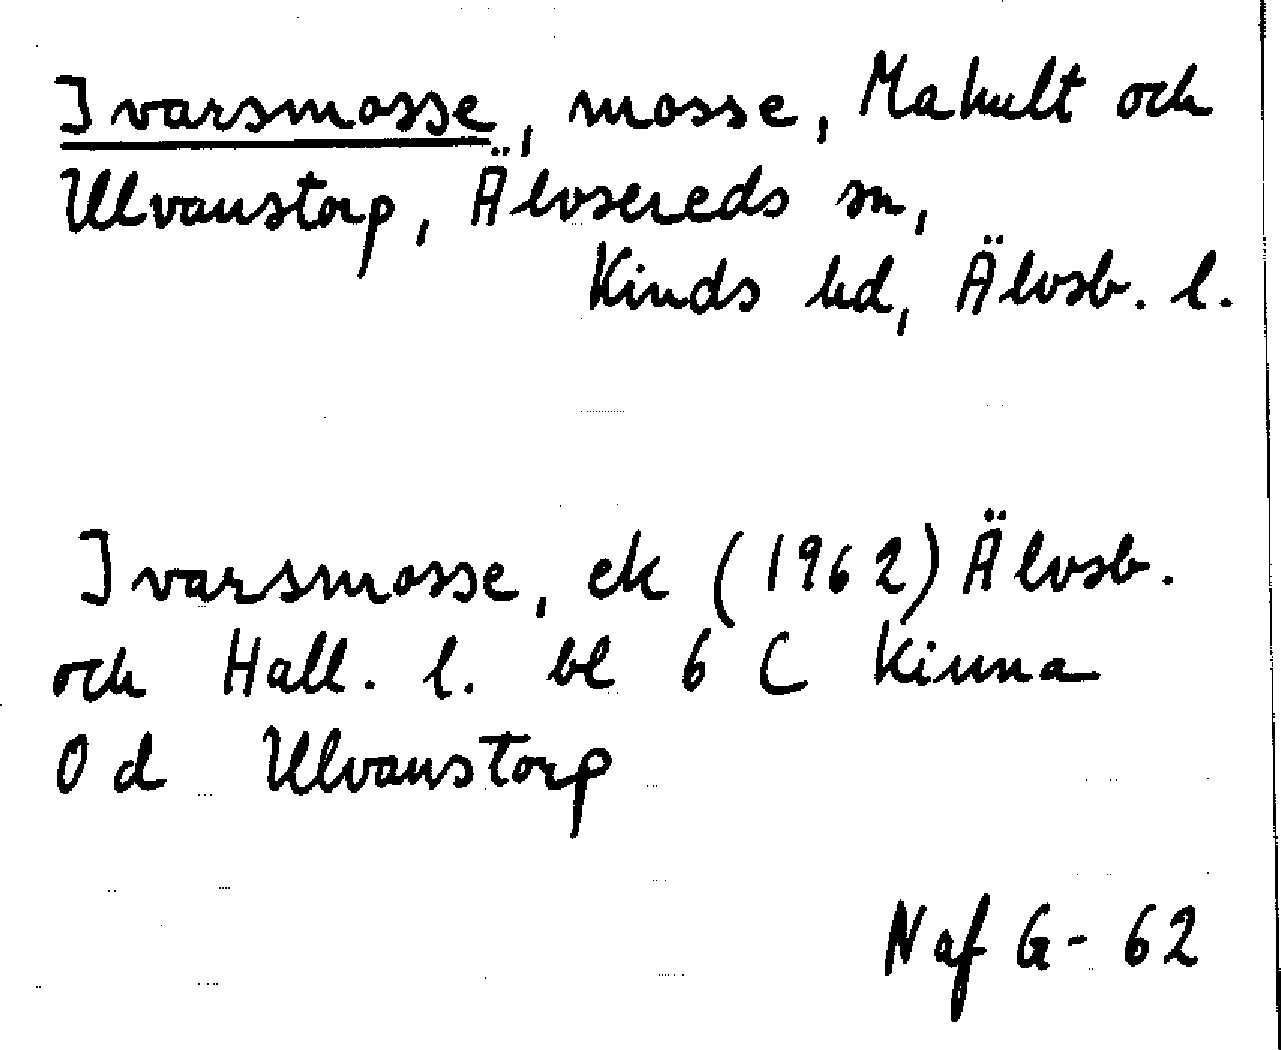 Ivarsmosse, mosse, Mahult och
Ulvanstorp, Älvsereds sn,
Kinds hd, Älvsb. l.
Ivarsmosse, ek (1962) Älvsb.
och Hall. l. bl 6 C Kinna
0 d Ulvanstorp
N af G - 62